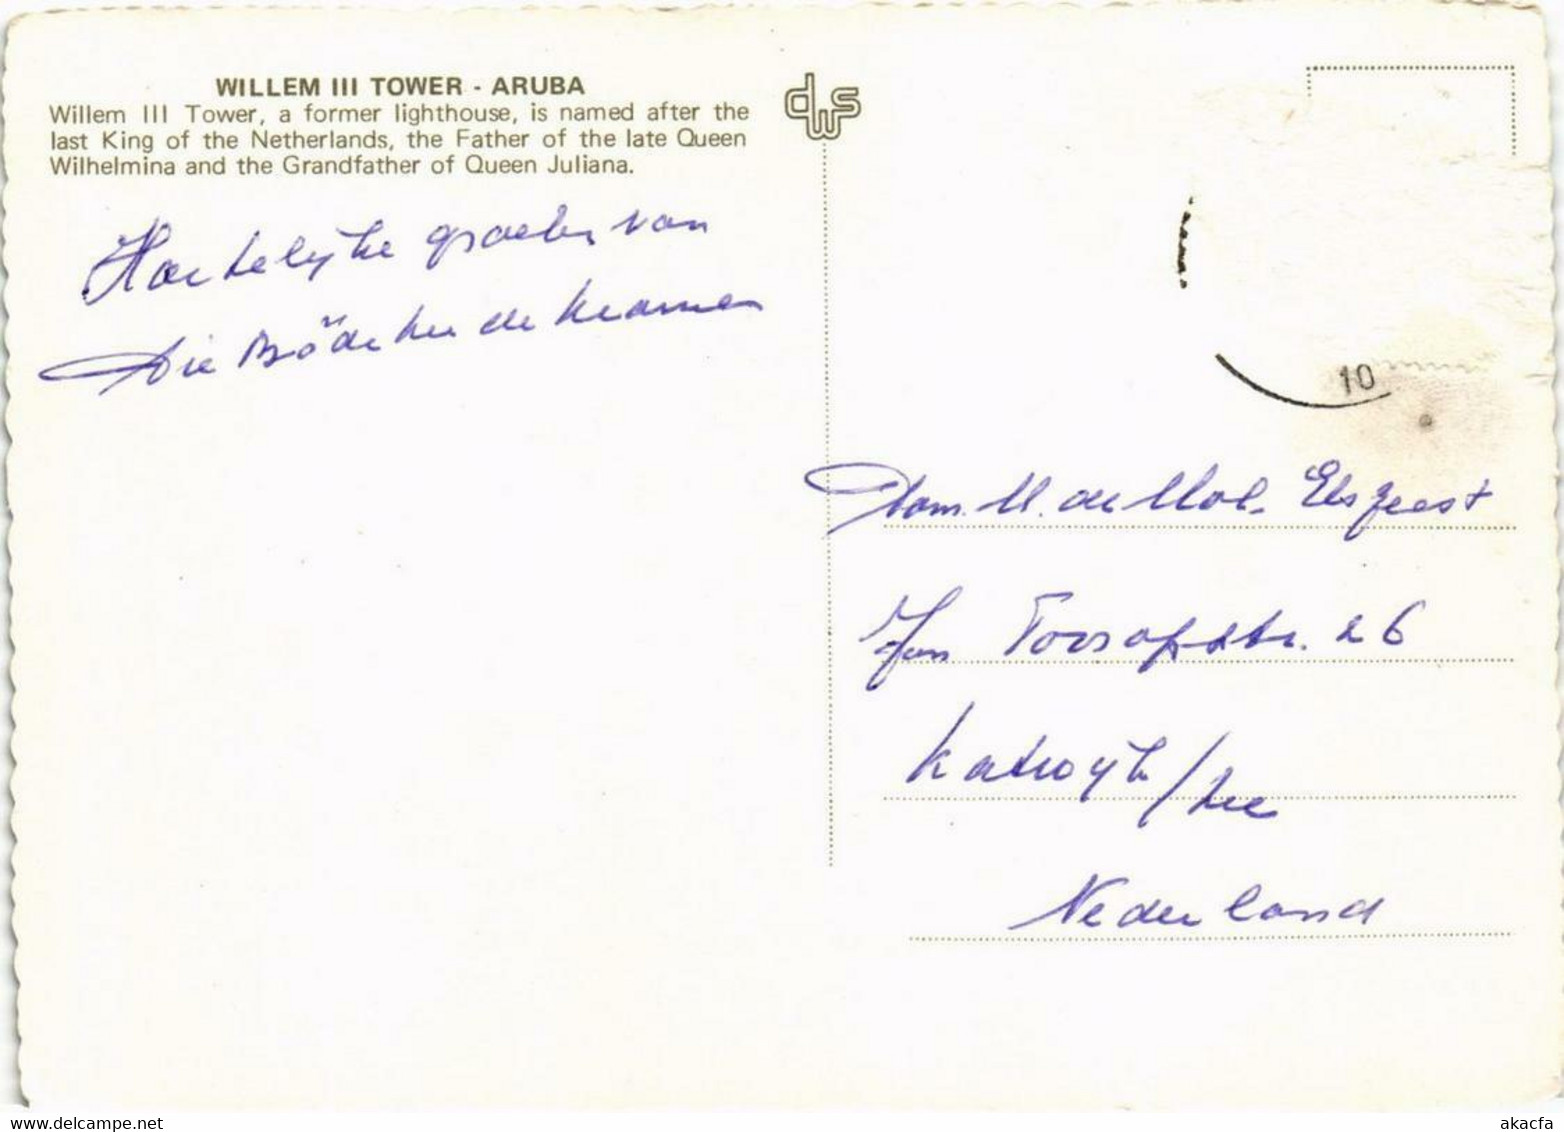 WILLEM III TOWER - ARUBA
Willem III Tower, a former lighthouse, is named after the
last King of the Netherlands, the Father of the late Queen
Wilhelmina and the Grandfather of Queen Juliana.
dws
Hartelijke groeten van
10
Fam. M. de Mol- Elsgeest
Jan Tooropstr. 26
Katwijk/Zee
Nederland
akacfa